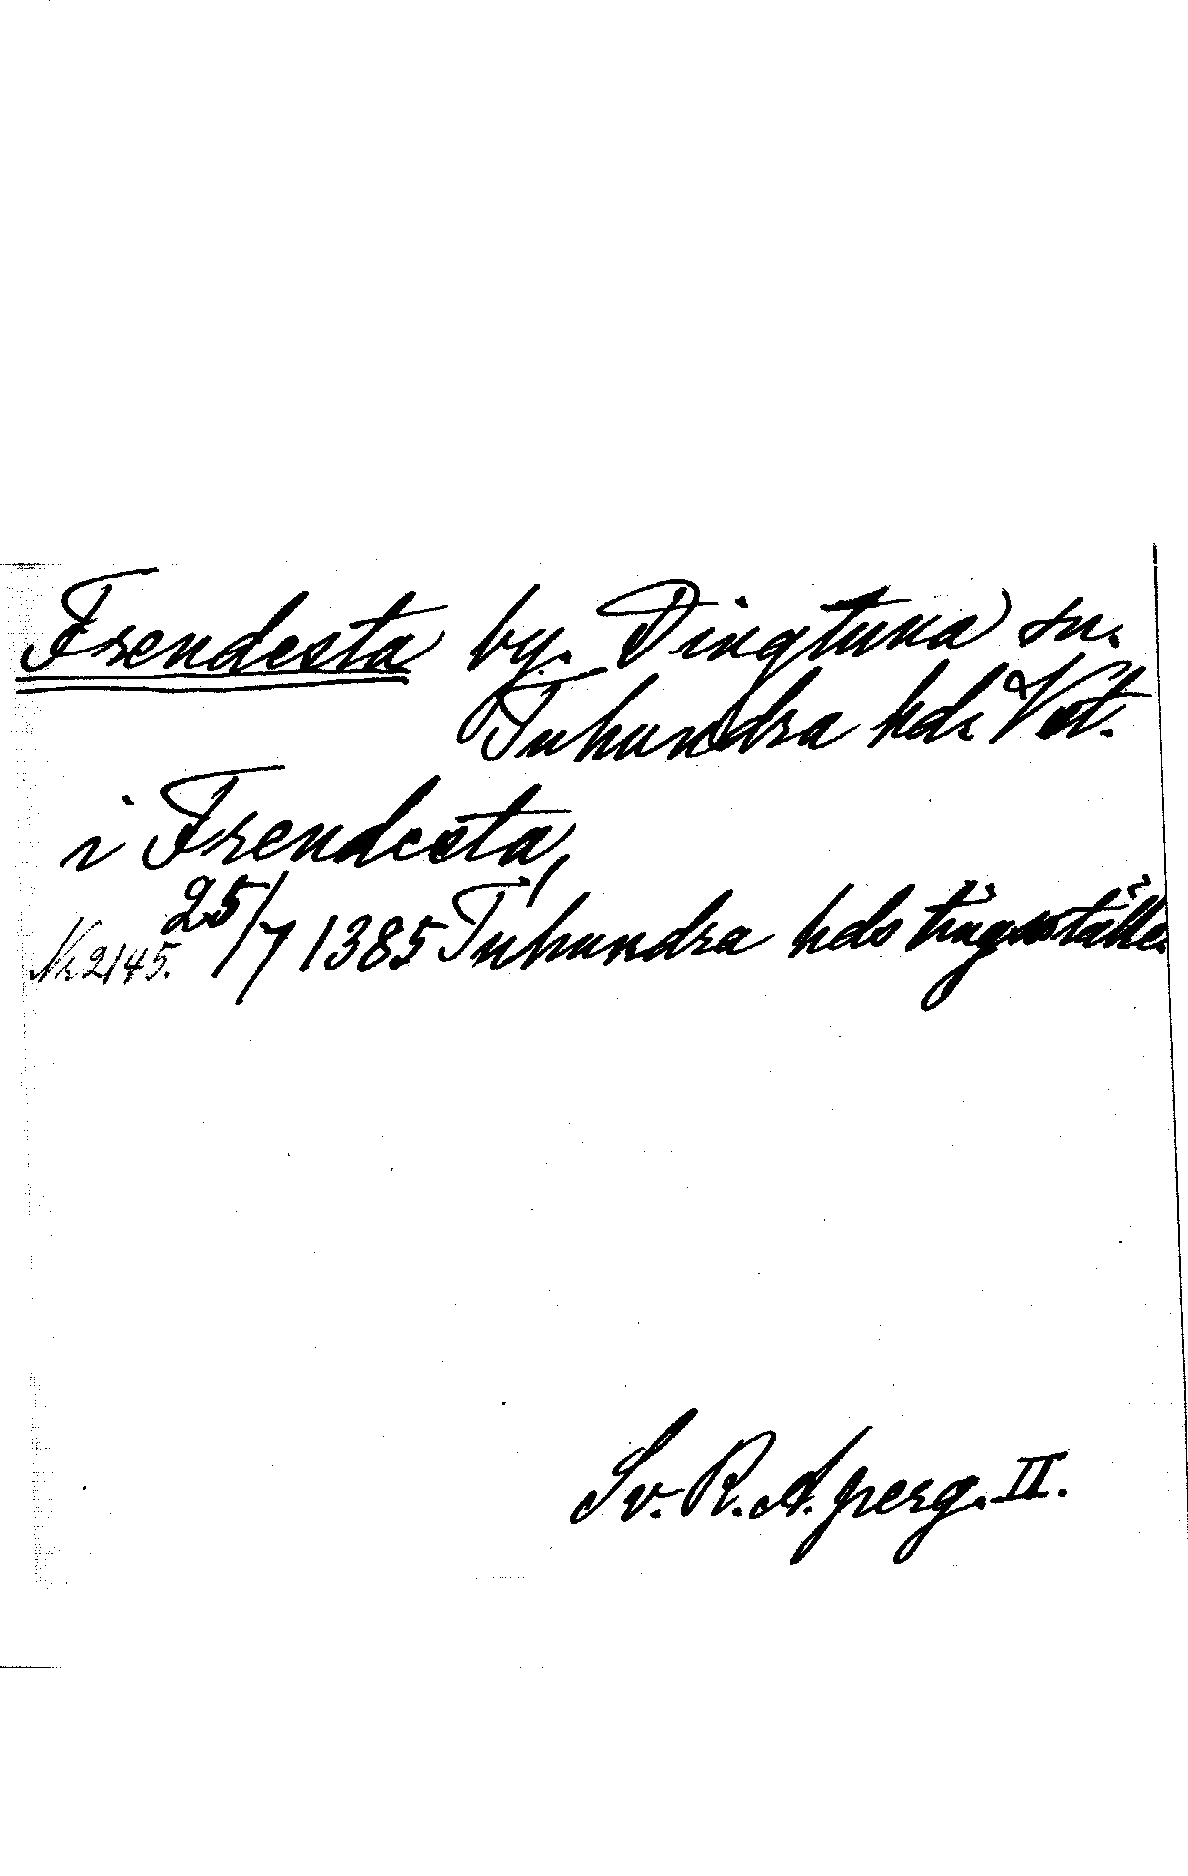 Frendesta by. Dingtuna sn.
Tuhundra hd. Vst.
i Frendesta,
25/7 1385 Tuhundra hds tingsställe.
Nr 2145.
Sv. R. A. perg. II.